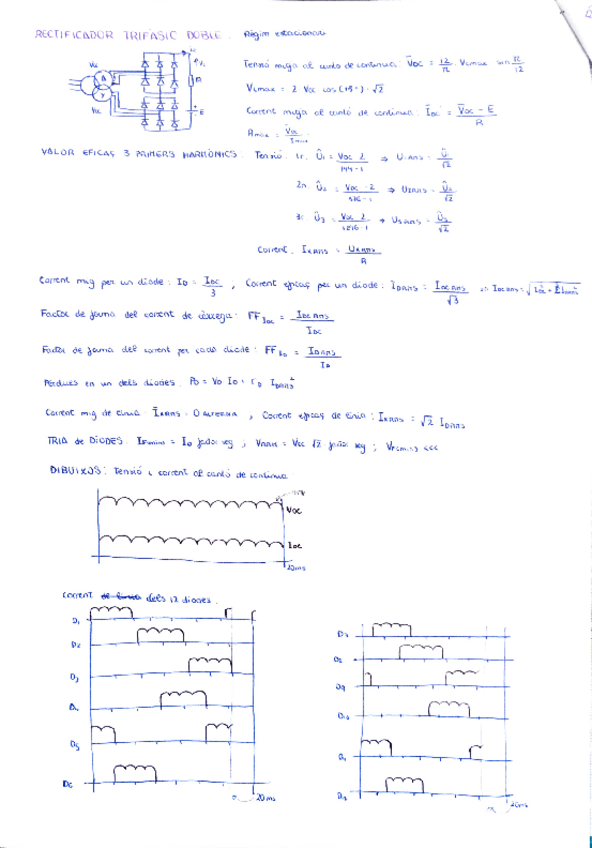 RECTIFICADOR TRIFASIC DOBLE. Règim estacionari
Tensió mitja al cantó de contínua: V̄DC = 12/π · VLmax sin π/12
VLmax = 2 Vcc cos(15º) · √2
Corrent mitja al cantó de contínua: ĪDC = (V̄DC - E)/R
VALOR EFICAÇ 3 PRIMERS HARMÒNICS: Tensió: 1r: Û1 = VDC 2/(144-1) ⇒ U1RMS = Û1/√2
2n: Û2 = VDC · 2/(576-1) ⇒ U2RMS = Û2/√2
3r: Û3 = VDC 2/(1296-1) ⇒ U3RMS = Û3/√2
Corrent: IxRMS = UxRMS/R
Corrent mig per un diode: ID = IDC/3 , Corrent eficaç per un diode: IDRMS = IDCRMS/√3
Factor de forma del corrent de càrrega: FF IDC = IDCRMS/IDC
Factor de forma del corrent per cada diode: FF ID = IDRMS/ID
Pèrdues en un dels diodes: PD = V0 ID + rD IDRMS²
Corrent mig de línia: = 0 ALTERNA , Corrent eficaç de línia: = √2 IDRMS
TRIA de DÍODES: = ID factor seg ; VRRM = Vcc √2 factor seg ; <<<
DIBUIXOS: Tensió i corrent al cantó de contínua
VDC
IDC
20ms
Corrent dels 12 diodes.
D1
D2
D3
D4
D5
D6
20ms
D7
D8
D9
D10
D11
D12
20ms